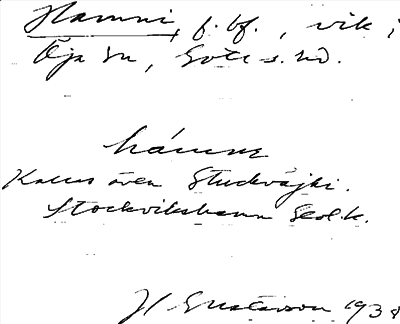 Hamni, f. bf., vik i
Öja sn, Gotl. s. hd.
hámnę
Kallas även Studkväjki.
Stockvikshamn Geol.k.
H Gustavson 1938